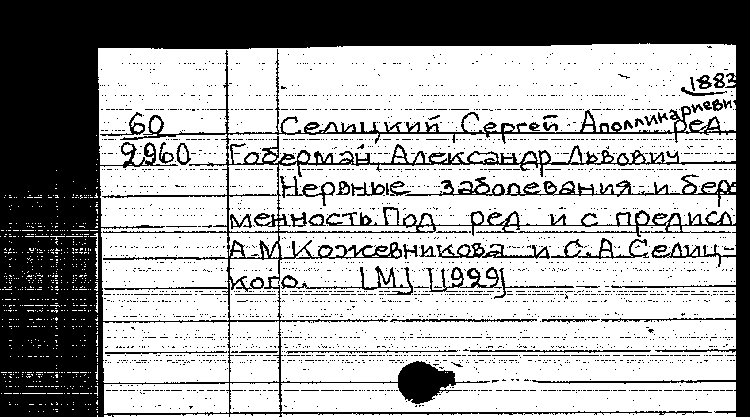 1883
60 Селицкий, Сергей Аполлинариеви ред.
2960 Гоберман, Александр Львович
Нервные заболевания и бере
менность. Под ред. и с предисл.
А.М. Кожевникова и С.А. Селиц-
кого. [М.] [1929]